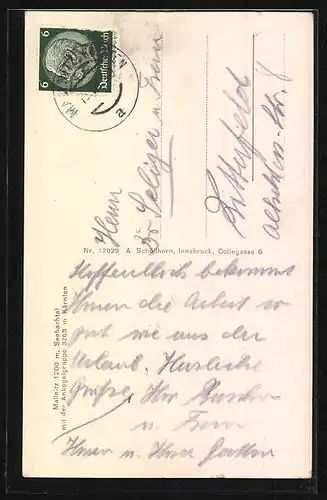 6 Deutsches Reich 6
Herrn
Dr. Seliger u. Frau
Bitterfeld
Nr. 12029 A. Schöllhorn, Innsbruck, Colingasse 6
Mallnitz 1200 m, Seebachtal
mit der Ankogelgruppe 3263 m Kärnten
Hoffentlich bekommt
Ihnen die Arbeit so
gut wie uns der
Urlaub. Herzliche
Grüße, Ihr
u. Frau
Ihnen u. Ihrer Gattin